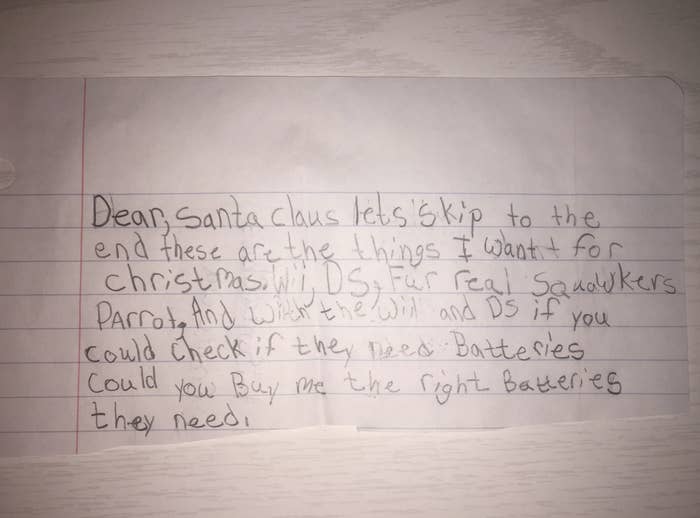 Dear, Santa claus lets skip to the
end these are the things I want for
christmas. Wii, DS, Fur real Squawkers
PArrot, And with the wii and DS if you
could check if they need Batteries
Could you Buy me the right Batteries
they need.